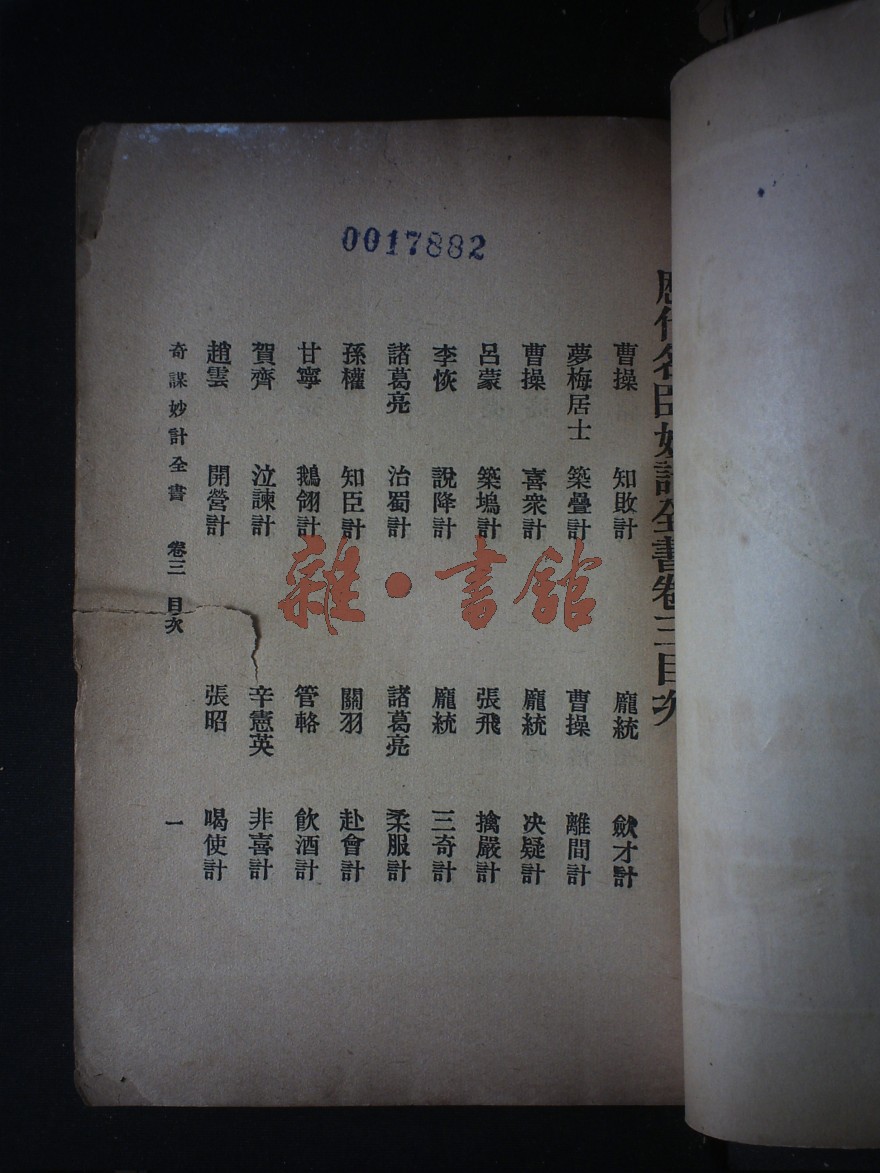 0017882
歷代名臣妙計全書卷三目次
曹操 知敗計 龐統 斂才計
夢梅居士 築疊計 曹操 離間計
曹操 喜衆計 龐統 决疑計
呂蒙 築塢計 張飛 擒嚴計
李恢 說降計 龐統 三奇計
諸葛亮 治蜀計 諸葛亮 柔服計
孫權 知臣計 關羽 赴會計
甘寧 鵝翎計 管輅 飲酒計
賀齊 泣諫計 辛憲英 非喜計
趙雲 開營計 張昭 喝使計
奇謀妙計全書 卷三 目次 一
雜·書館